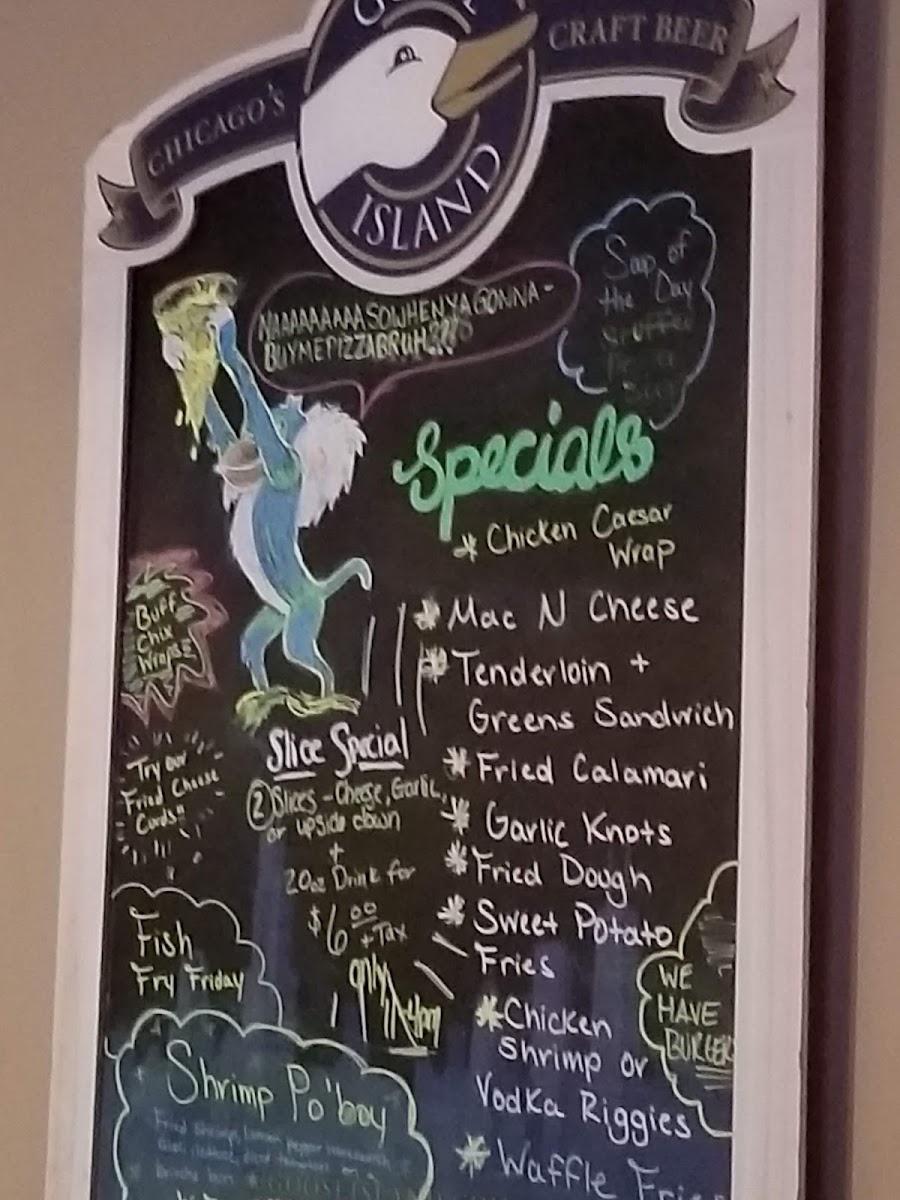 CHICAGO'S
CRAFT BEER
ISLAND
NAAAAAAAAASOWHENYAGONNA-
BUYMEPIZZABRUH???
Soup of
the Day
Stuffed
Specials
* Chicken Caesar
Wrap
* Mac N Cheese
* Tenderloin +
Greens Sandwich
* Fried Calamari
* Garlic Knots
* Fried Dough
* Sweet Potato
Fries
* Chicken
Shrimp or
Vodka Riggies
* Waffle Fries
Buff
Chix
Wraps
Try our
Fried Cheese
Curds!!
Slice Special
2 Slices - Cheese, Garlic,
or upside down
+
20oz Drink for
$6.00
+ Tax
only
11-4pm
Fish
Fry Friday
WE
HAVE
BURGER
Shrimp Po'boy
Fried shrimp, lemon pepper
GOOSE ISLAND